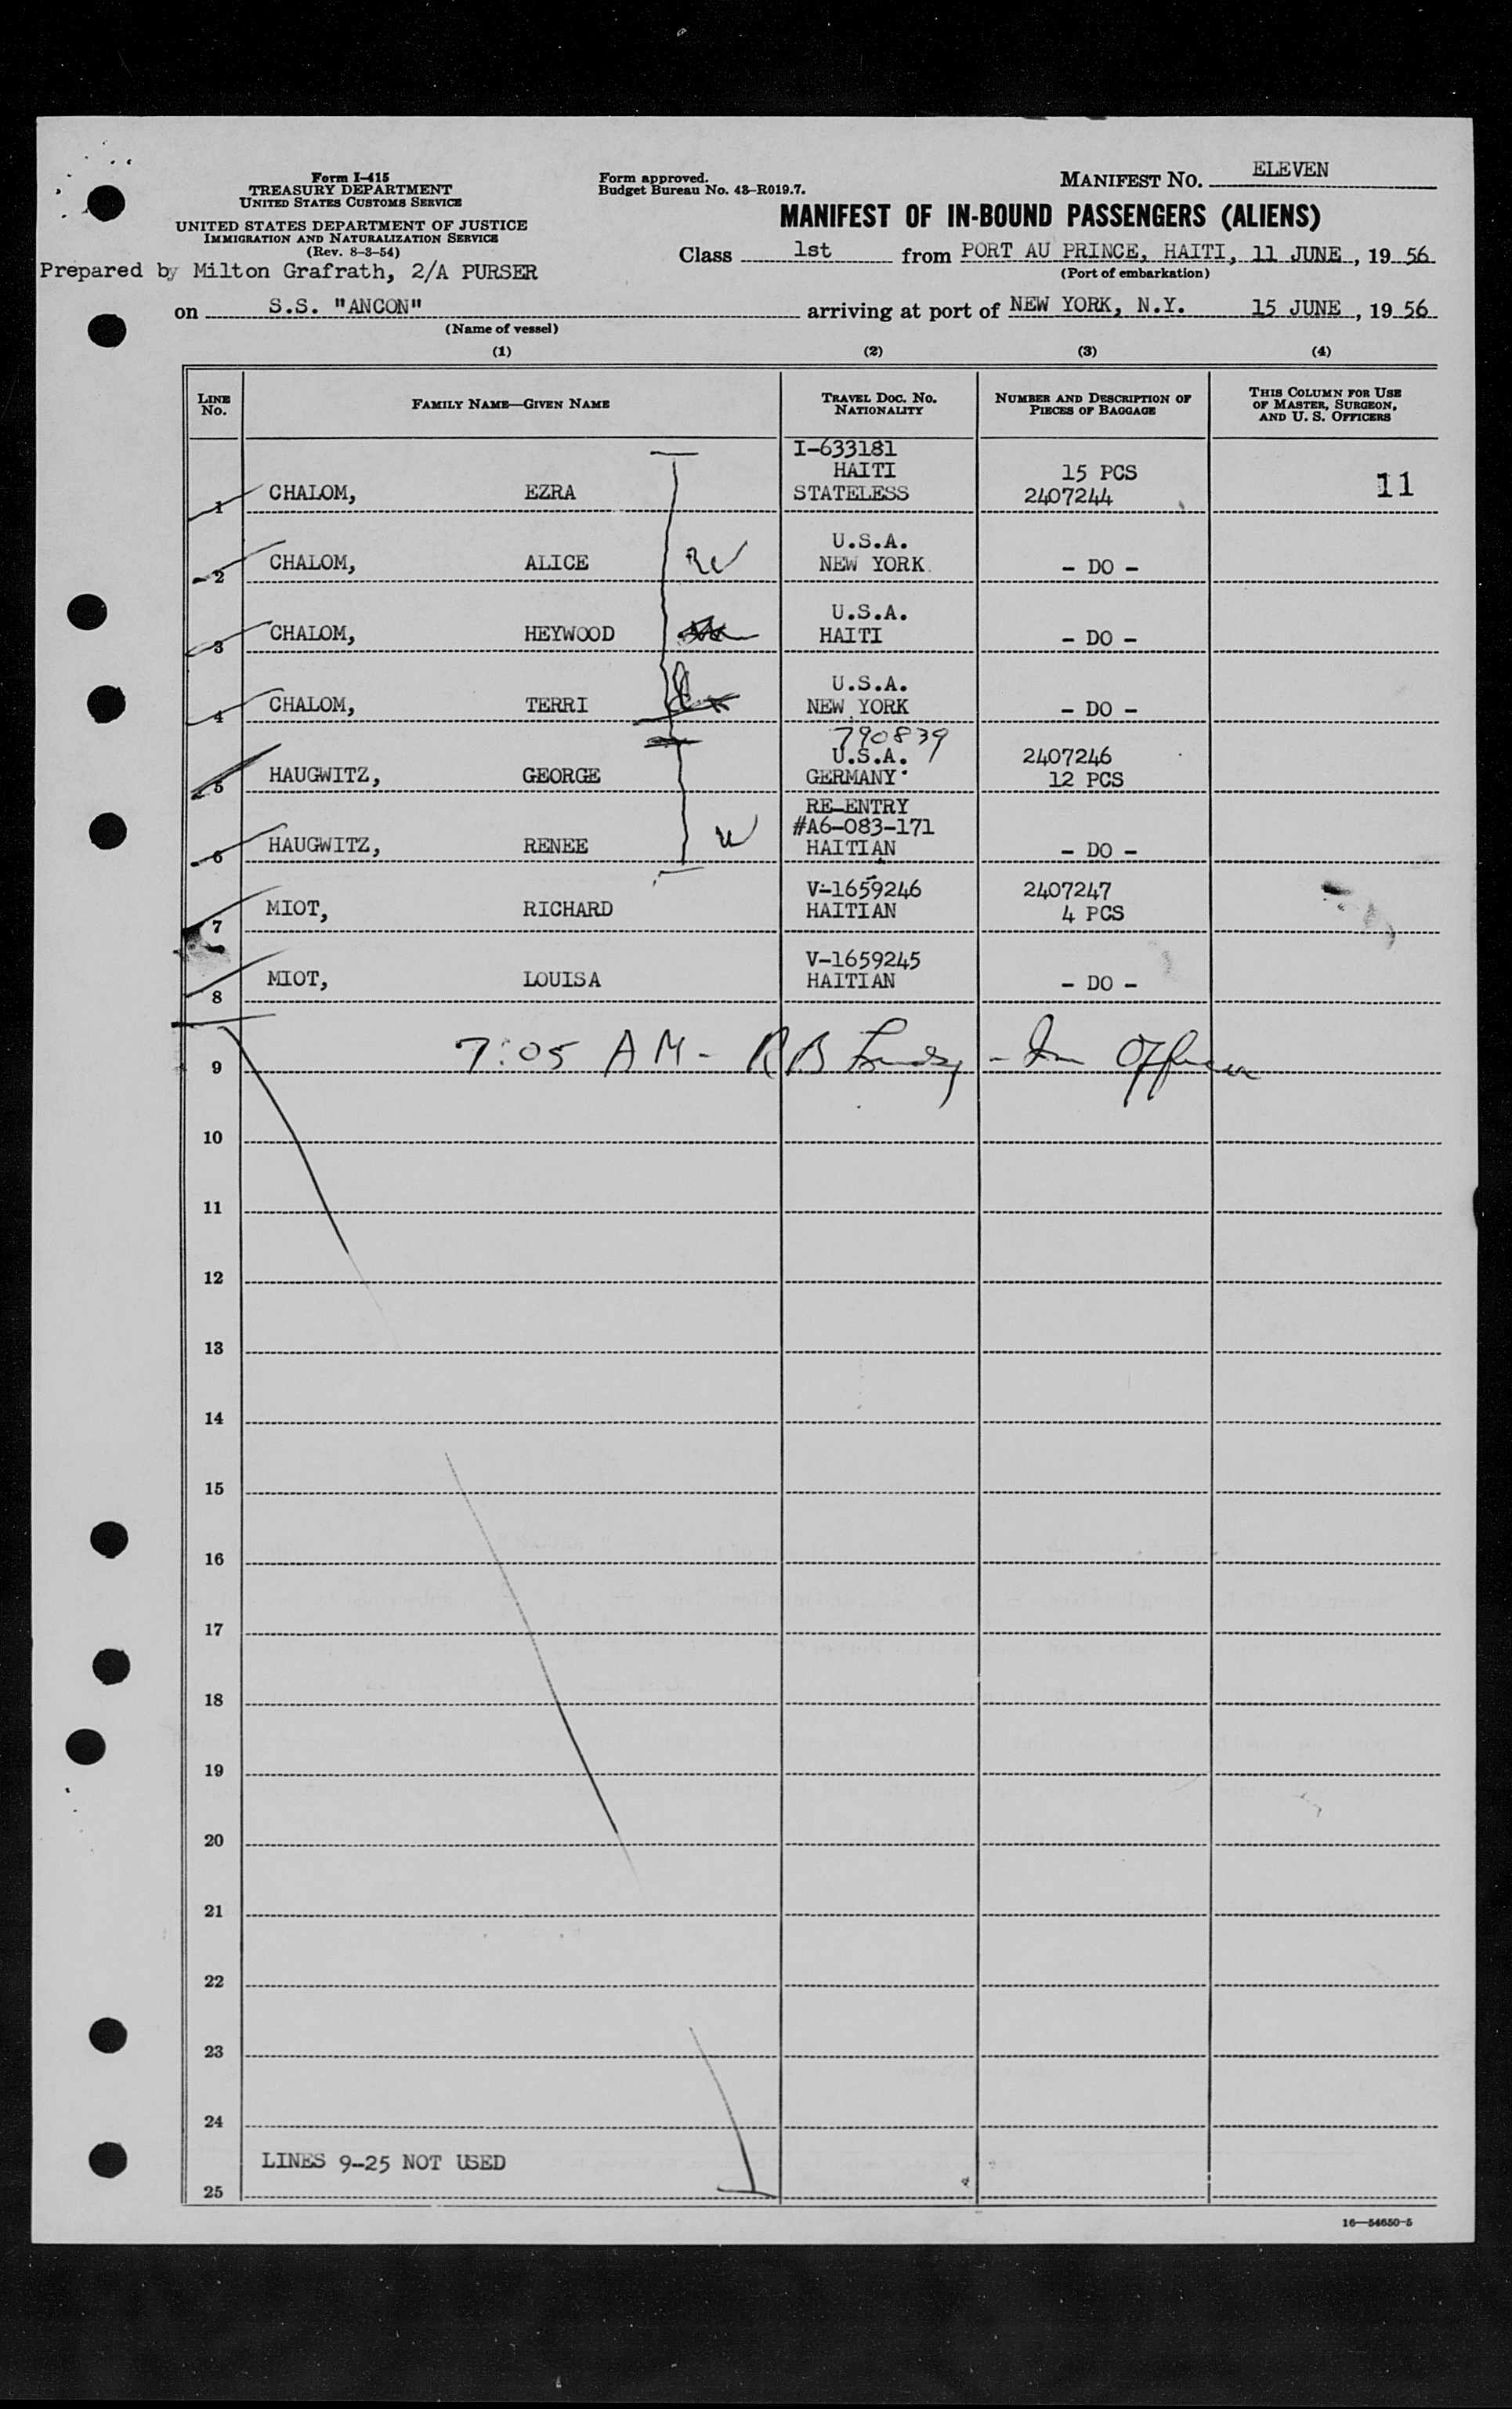 Form I-415
TREASURY DEPARTMENT
UNITED STATES CUSTOMS SERVICE
UNITED STATES DEPARTMENT OF JUSTICE
IMMIGRATION AND NATURALIZATION SERVICE
(Rev. 8-3-54)
Prepared by Milton Grafrath, 2/A PURSER
Form approved.
Budget Bureau No. 43-R019.7.
MANIFEST NO. ELEVEN
MANIFEST OF IN-BOUND PASSENGERS (ALIENS)
Class 1st from PORT AU PRINCE, HAITI, 11 JUNE, 19 56
(Port of embarkation)
on S.S. "ANCON" arriving at port of NEW YORK, N.Y. 15 JUNE, 19 56
(Name of vessel)
(1) (2) (3) (4)
LINE NO. FAMILY NAME—GIVEN NAME TRAVEL DOC. NO. NATIONALITY NUMBER AND DESCRIPTION OF PIECES OF BAGGAGE THIS COLUMN FOR USE OF MASTER, SURGEON, AND U. S. OFFICERS
I-633181
HAITI 15 PCS
1 CHALOM, EZRA STATELESS 2407244 11
U.S.A.
2 CHALOM, ALICE NEW YORK - DO -
U.S.A.
3 CHALOM, HEYWOOD HAITI - DO -
U.S.A.
4 CHALOM, TERRI NEW YORK - DO -
790839
U.S.A. 2407246
5 HAUGWITZ, GEORGE GERMANY 12 PCS
RE-ENTRY
#A6-083-171
6 HAUGWITZ, RENEE HAITIAN - DO -
V-1659246 2407247
7 MIOT, RICHARD HAITIAN 4 PCS
V-1659245
8 MIOT, LOUISA HAITIAN - DO -
9 7:05 AM - R B - Im Officer
10
11
12
13
14
15
16
17
18
19
20
21
22
23
24
LINES 9-25 NOT USED
25
16—54650-5